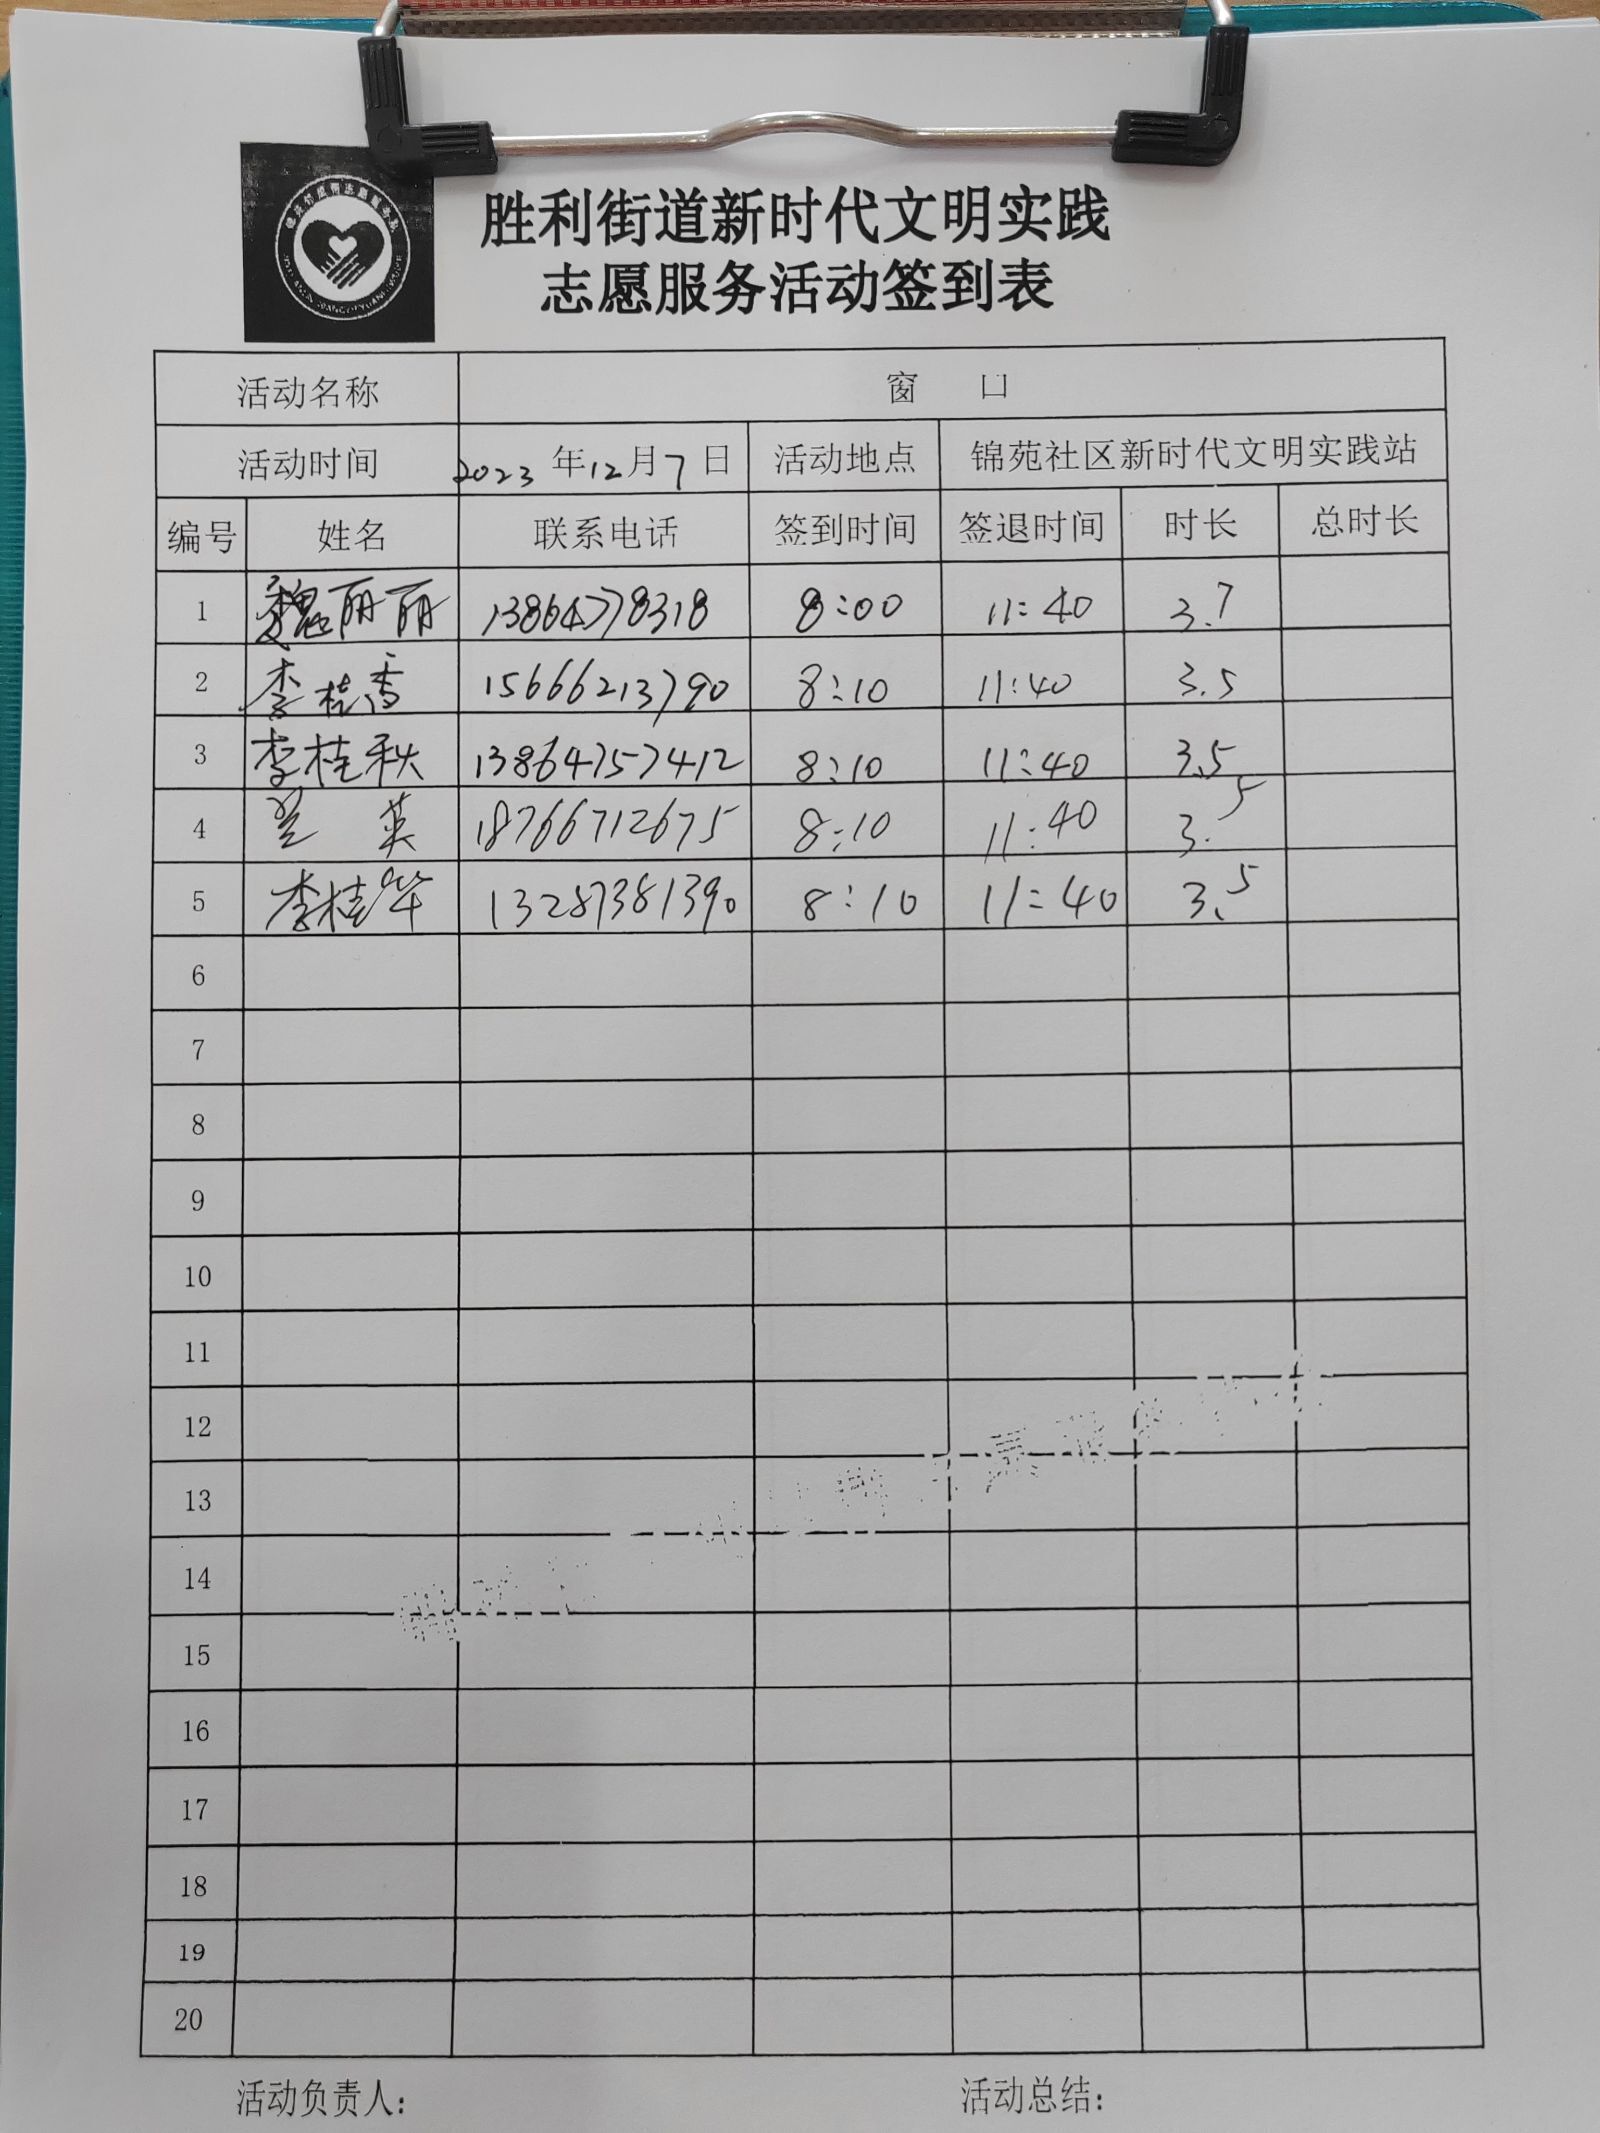 胜利街道新时代文明实践
志愿服务活动签到表
活动名称 窗 口
活动时间 2023 年 12 月 7 日 活动地点 锦苑社区新时代文明实践站
编号 姓名 联系电话 签到时间 签退时间 时长 总时长
1 魏丽丽 13864778318 8:00 11:40 3.7
2 李桂香 15666213790 8:10 11:40 3.5
3 李桂秋 13864757412 8:10 11:40 3.5
4 英 18766712675 8:10 11:40 3.5
5 李桂华 13287381390 8:10 11:40 3.5
6
7
8
9
10
11
12
13
14
15
16
17
18
19
20
活动负责人: 活动总结: